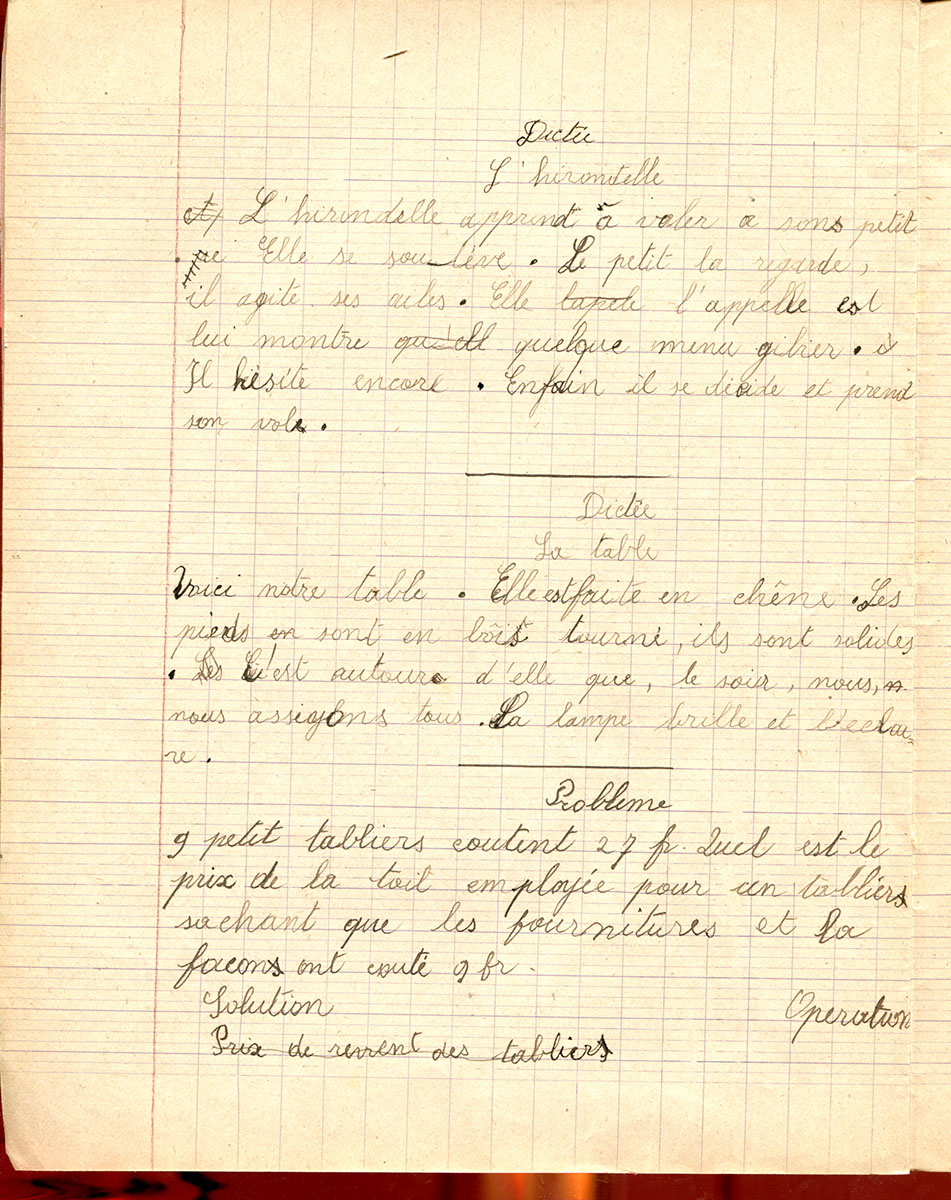 Dictée
L'hirondelle
L'hirondelle apprend à voler a sons petit
Elle se soulève. Le petit la regarde,
il agite ses ailes. Elle lapele l'appelle est
lui montre qu'ell quelque menu gibier.
Il hésite encore. Enfain il se décide et prend
son vole.
Dictée
La table
Voici notre table. Elle est faite en chêne. Les
pieds en sont en bois tourné, ils sont solides
. Les C'est autour d'elle que, le soir, nous,
nous asseyons tous. La lampe brille et l'eclai=
re.
Problème
9 petit tabliers coutent 27 fr. Quel est le
prix de la toil employée pour un tabliers
sachant que les fournitures et la
facons ont couté 9 fr.
Solution
Operation
Prix de revient des tabliers